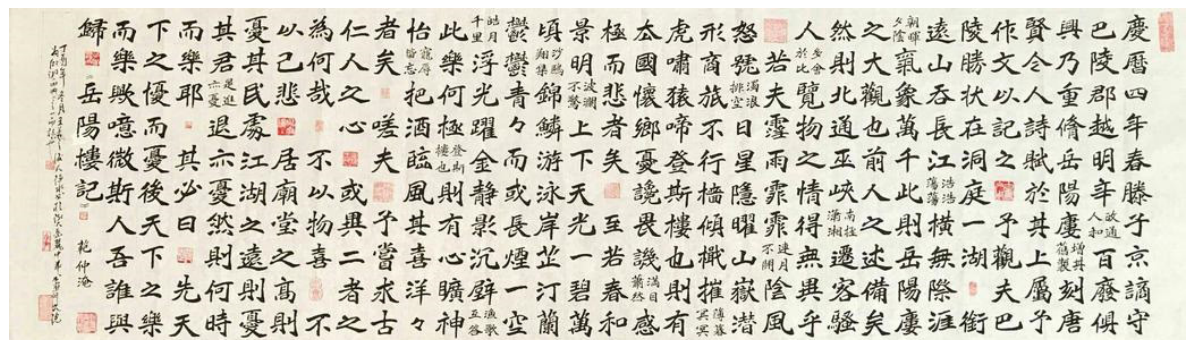 慶曆四年春滕子京謫守
巴陵郡越明年政通人和百廢俱
興乃重脩岳陽廔增其舊製刻唐
賢今人詩賦於其上屬予
作文以記之予觀夫巴
陵勝狀在洞庭一湖銜
遠山吞長江浩浩蕩蕩橫無際涯
朝暉夕陰氣象萬千此則岳陽廔
之大觀也前人之述備矣
然則北通巫峽南極瀟湘遷客騷
人多會於此覽物之情得無異乎
若夫霪雨霏霏連月不開陰風
怒號濁浪排空日星隱曜山嶽潛
形商旅不行檣傾檝摧薄暮冥冥
虎嘯猿啼登斯樓也則有
去國懷鄉憂讒畏譏滿目蕭然感
極而悲者矣至若春和
景明波瀾不驚上下天光一碧萬
頃沙鷗翔集錦鱗游泳岸芷汀蘭
鬱鬱青々而或長煙一空
皓月千里浮光躍金静影沉璧漁歌互答
此樂何極登斯樓也則有心曠神
怡寵辱皆忘把酒臨風其喜洋々
者矣嗟夫予嘗求古
仁人之心或異二者之
為何哉不以物喜不
以己悲居廟堂之高則
憂其民處江湖之遠則憂
其君是進亦憂退亦憂然則何時
而樂耶其必曰先天
下之憂而憂後天下之樂
而樂歟噫微斯人吾誰與
歸岳陽樓記范仲淹